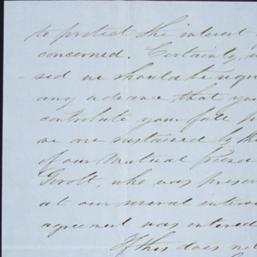 to protect the interest
concerned. Certainly
sed we should be
any advance that you
your
we are sustained by the
of our Mutual friend
Gerolt, who was presen
at our several interv
agreement was entered
If this does not